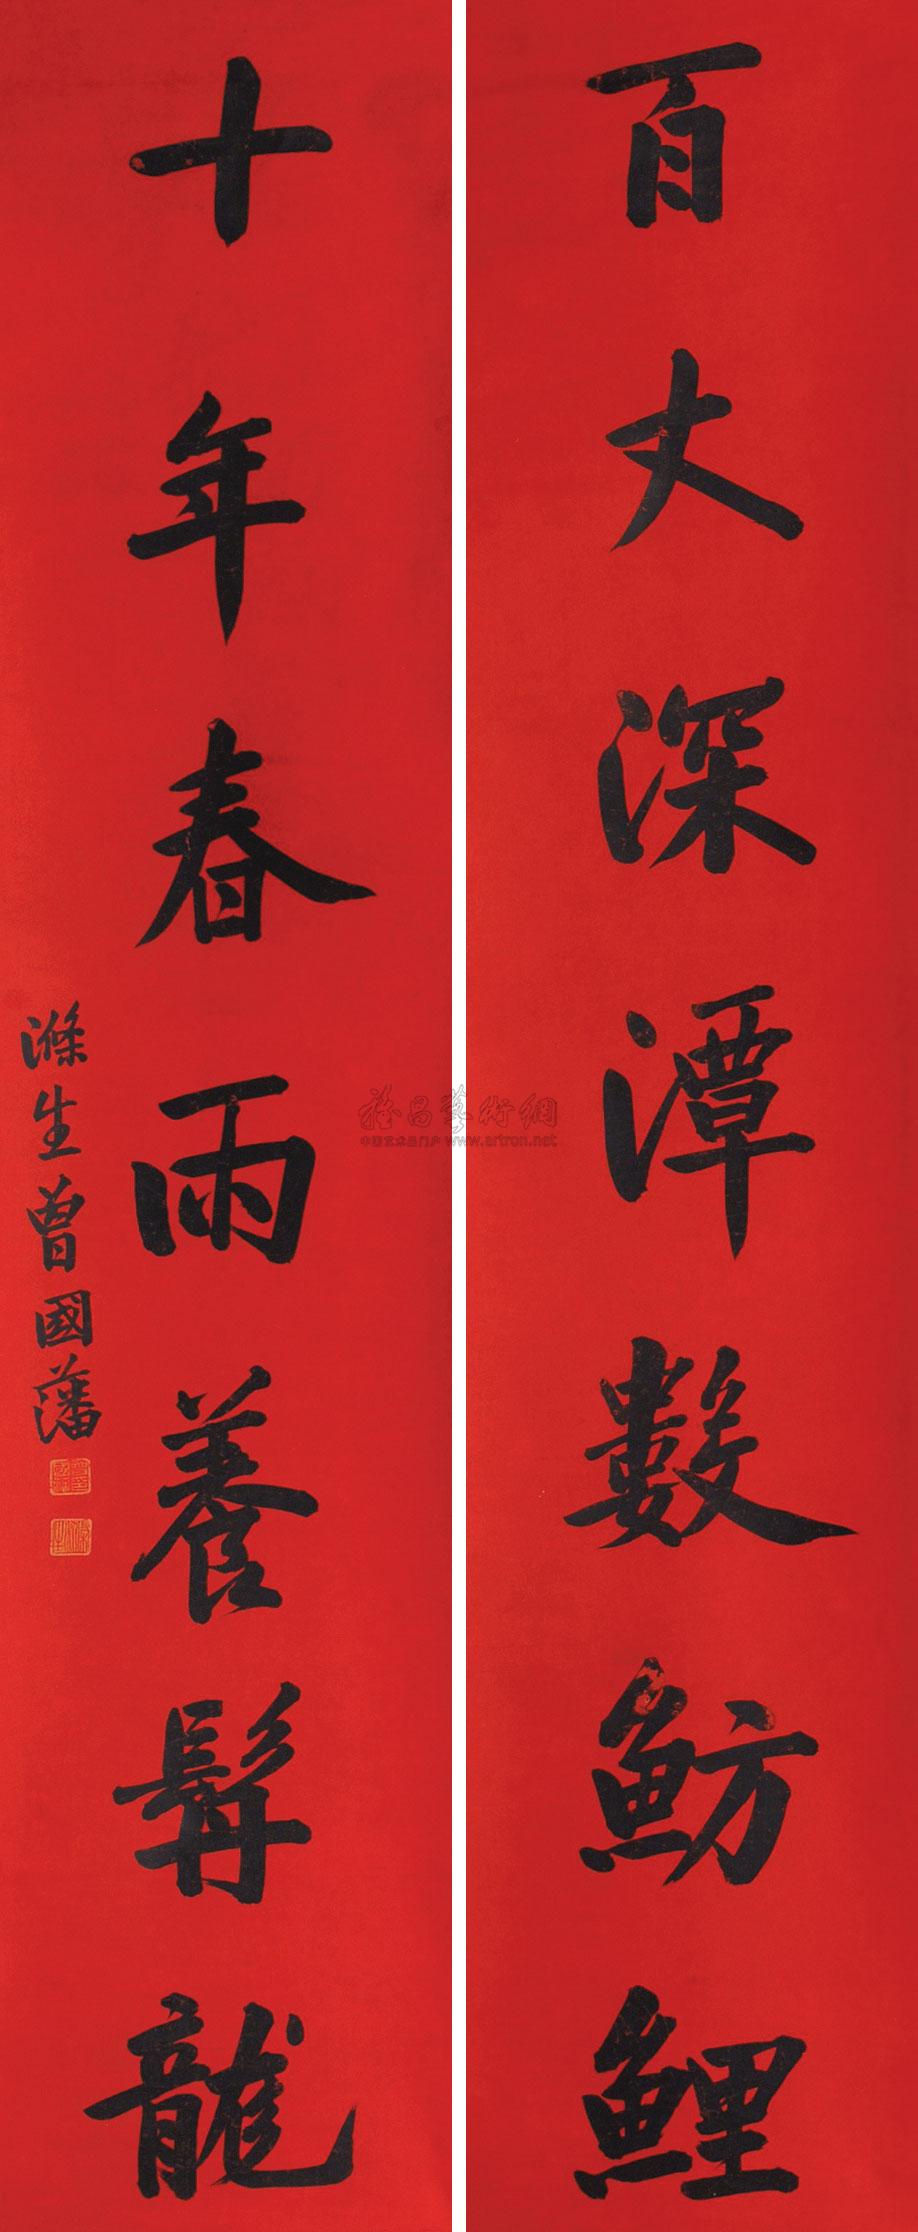 百丈深潭數魴鯉
十年春雨養髯龍
滌生曾國藩
雅昌藝術網
中国艺术品门户 www.artron.net